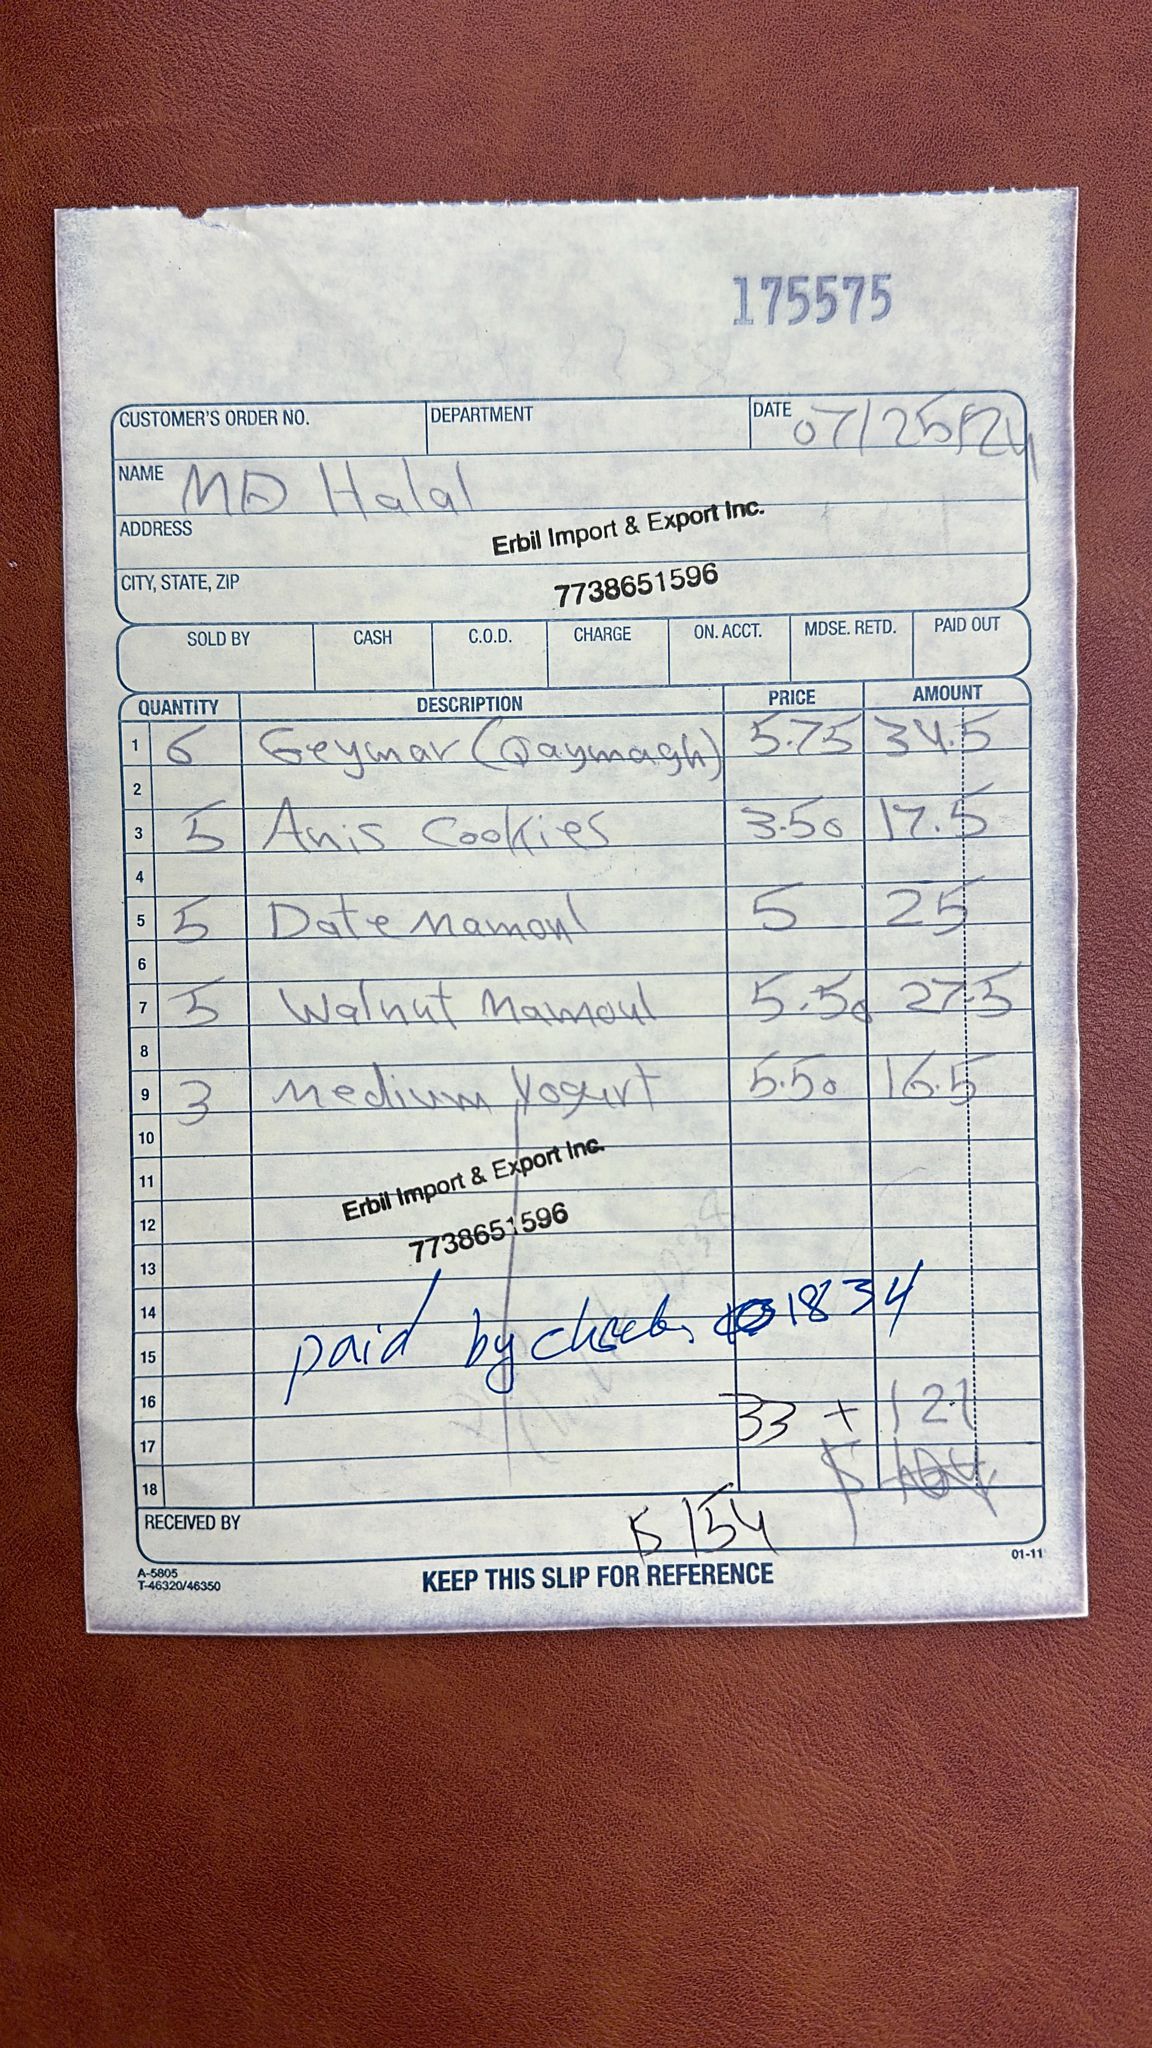 175575
CUSTOMER'S ORDER NO. DEPARTMENT DATE 07/25/24
NAME MD Halal
ADDRESS
Erbil Import & Export Inc.
CITY, STATE, ZIP
7738651596
SOLD BY CASH C.O.D. CHARGE ON. ACCT. MDSE. RETD. PAID OUT
QUANTITY DESCRIPTION PRICE AMOUNT
1 6 Geymar (Qaymagh) 5.75 34.5
2
3 5 Anis Cookies 3.50 17.5
4
5 5 Date Mamoul 5 25
6
7 5 Walnut Mamoul 5.50 27.5
8
9 3 Medium Yogurt 5.50 16.5
10
11
Erbil Import & Export Inc.
12
7738651596
13
14
paid by check 1834
15
16
33 + 121
17
18 $
RECEIVED BY $ 154
A-5805
T-46320/46350
KEEP THIS SLIP FOR REFERENCE
01-11